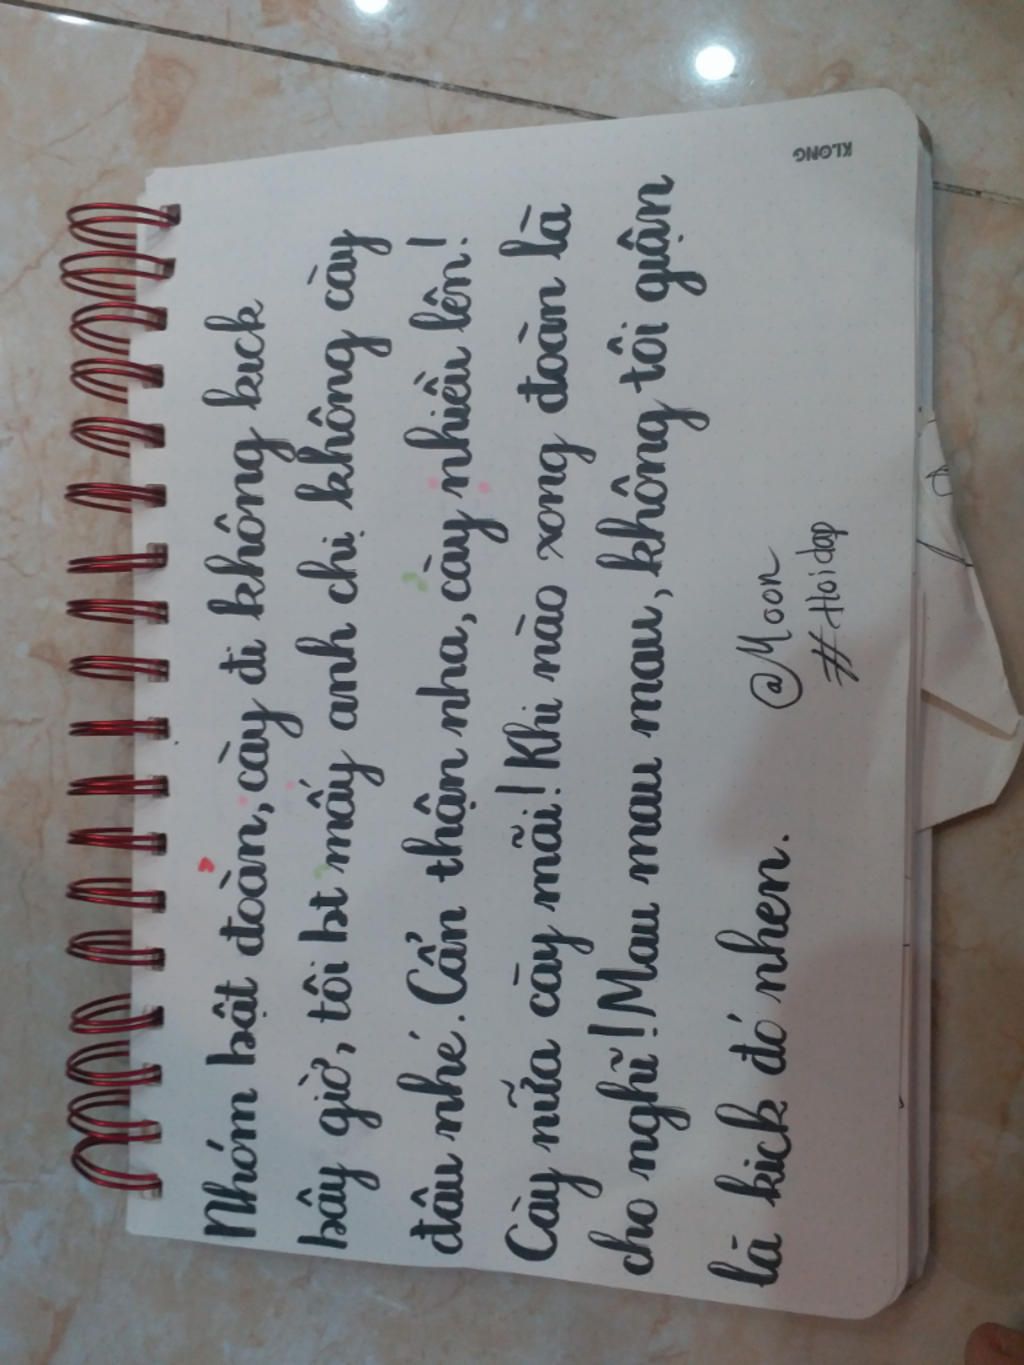 Nhóm bật đoàn, cày đi không kick
bây giờ, tôi bt mấy anh chị không cày
đâu nhé. Cẩn thận nha, cày nhiều lên!
Cày nữa cày mãi! Khi nào xong đoàn là
cho nghĩ! Mau mau mau mau, không tôi giận
là kick đó nhen.
@Moon
#Hoidap
KLONG